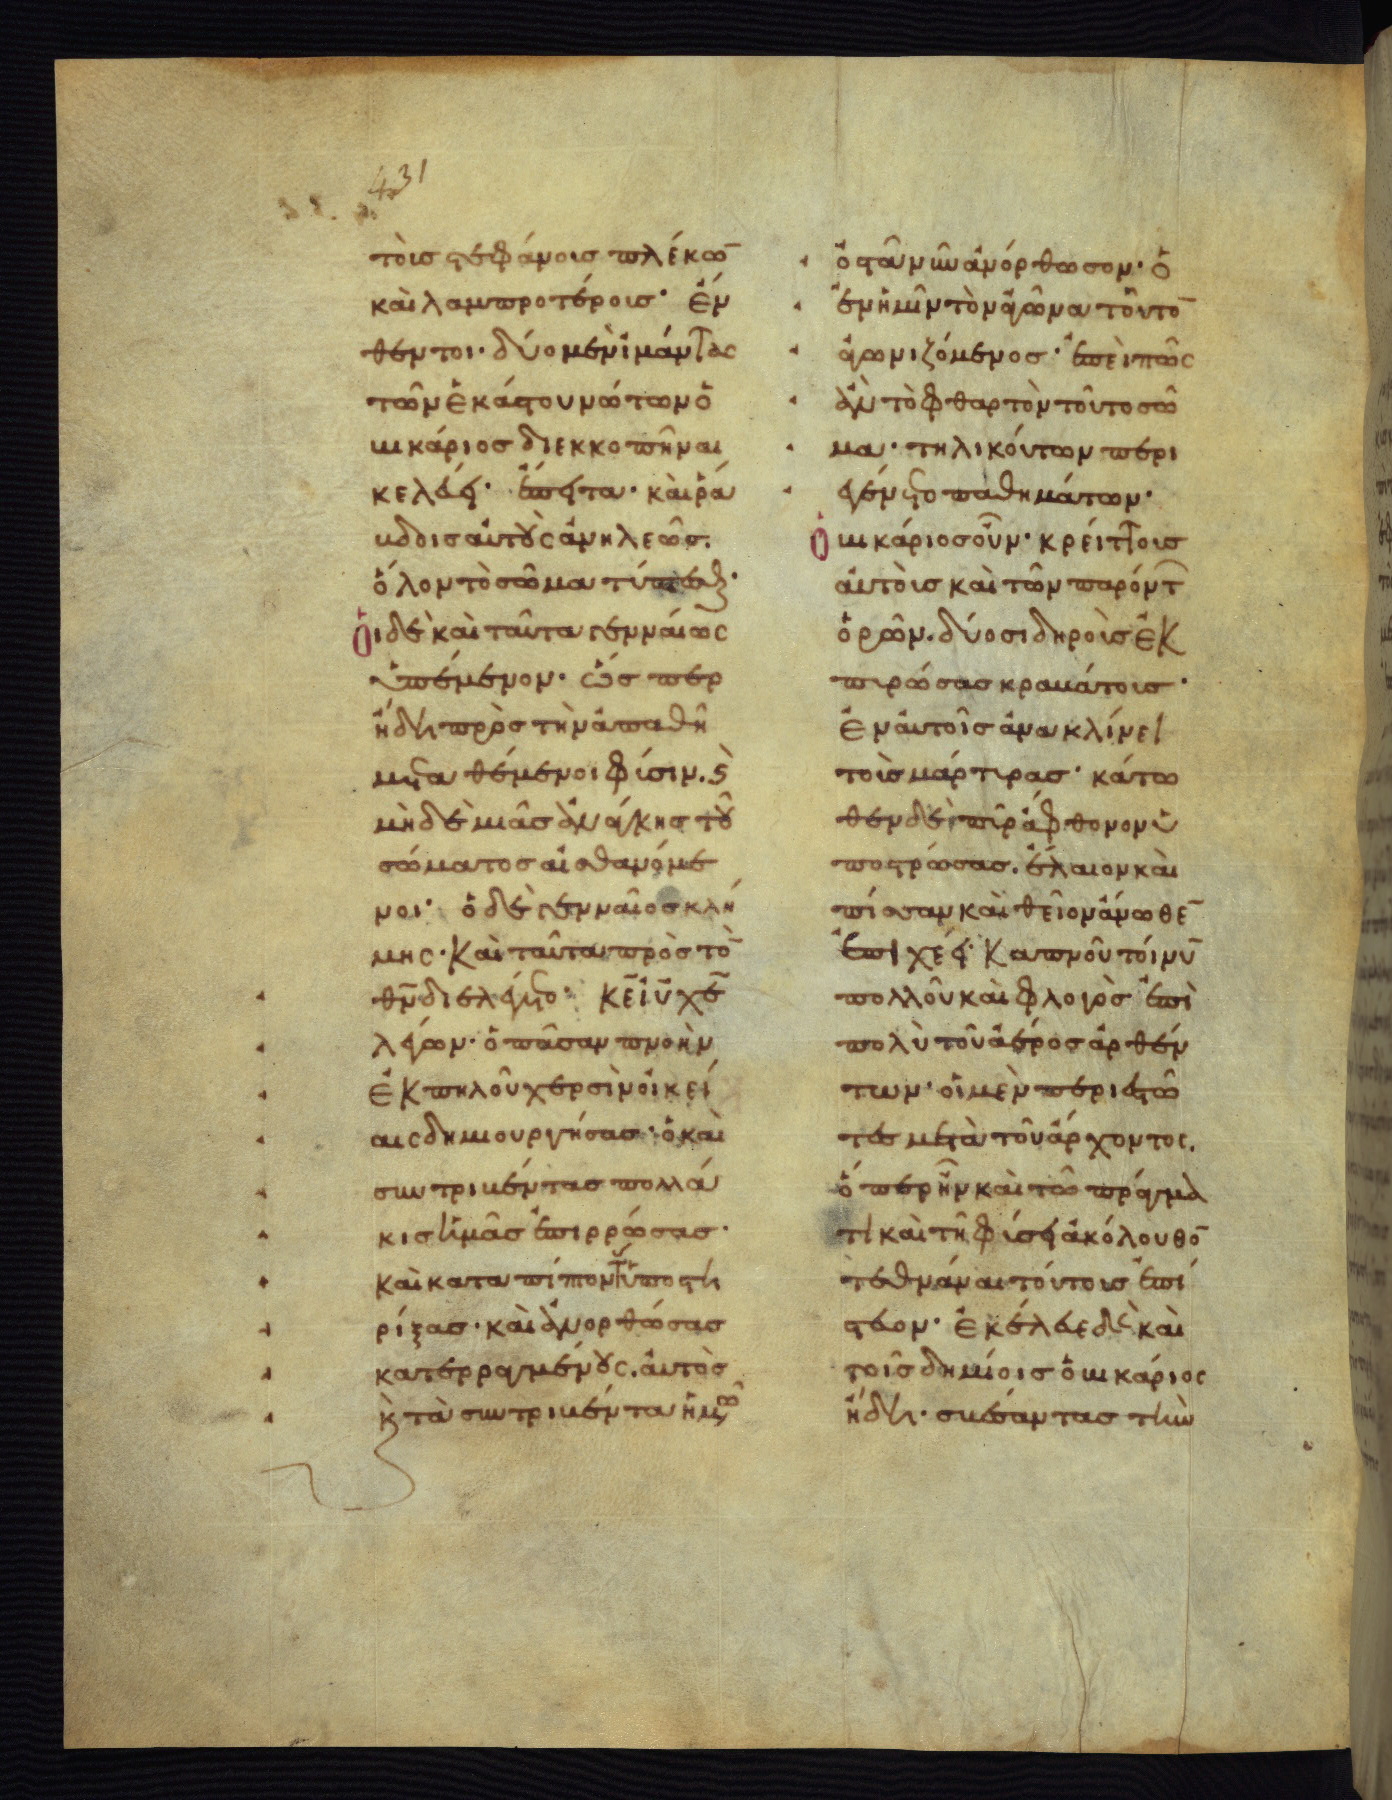 431
τοῖς στεφάνοις πλέκω̅
καὶ λαμπροτέροις· ἐν
θέν τοι· δύο μὲν ἱμάντας
τῶν ἑκάστου νώτων ὁ
μικάριος διεκκοπῆναι
κελεύει· ἔπειτα· καὶ ῥά
βδοις αὐτοὺς ἀνηλεῶς.
ὅλον τὸ σῶμα τύπτεσθαι·
Οἱ δὲ καὶ ταῦτα γενναίως
ὑπέμενον· ὥς περ
ἤδη πρὸς τὴν ἀπαθῆ
μεταθέμενοι φύσιν. καὶ
μηδεμιᾶς ἀνάγκης τοῦ
σώματος αἰσθανόμε
νοι· ὁ δὲ γενναῖος κλή
μης· Καὶ ταῦτα πρὸς τὸ̅
θ̅ν̅ διελέγετο· Κ̅ε̅ ἰ̅υ̅ χ̅ε̅
λέγων· ὁ πᾶσαν πνοὴν
ἐκ πηλοῦ χερσὶν οἰκεί
αις δημιουργήσας· ὁ καὶ
συντριβέντας πολλά
κις ἡμᾶς ἐπιρρώσας·
καὶ καταπίπτοντας ὑποστη
ρίξας· καὶ ἀνορθώσας
κατερραγμένους. αὐτὸς
κ̀ τὰ συντριβέντα ἡμῶν
ὀστᾶ νῦν ἀνόρθωσον· ὁ
ἐν ἡμῖν τὸν ἀγῶνα τοῦτο̅
ἀγωνιζόμενος· ἐπεὶ πῶς
ἂν τὸ φθαρτὸν τοῦτο σῶ
μα· τηλικούτων περι
γένοιτο παθημάτων·
Ὁ μικάριος οὖν· κρείττους
αὐτοὺς καὶ τῶν παρόντ̅
ὁρῶν. δύο σιδηροῖς ἐκ
πυρώσας κραβάτοις·
ἐν αὐτοῖς ἀνακλίνει
τοὺς μάρτυρας· κάτω
θεν δὲ πῦρ ἄφθονον ὑ
ποστρώσας. ἔλαιον καὶ
πίσσαν καὶ θεῖον ἄνωθε̅
ἐπιχέει· Καπνοῦ τοίνυ̅
πολλοῦ καὶ φλογὸς ἐπὶ
πολὺ τοῦ ἀέρος ἀρθέν
των· οἱ μὲν περιεστῶ
τες μετὰ τοῦ ἄρχοντος.
ὅπερ ἦν καὶ τῶ πράγμα
τι καὶ τῆ φύσει ἀκόλουθο̅
τεθνάναι τούτοις ἐπί
στευον· ἐκέλευε δὲ καὶ
τοῖς δημίοις ὁ μικάριος
ἤδη· σβέσαντας τὴν